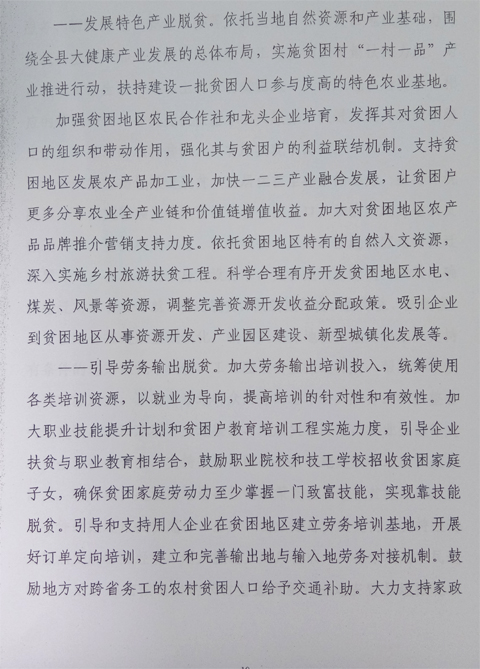 ——发展特色产业脱贫。依托当地自然资源和产业基础，围
绕全县大健康产业发展的总体布局，实施贫困村“一村一品”产
业推进行动，扶持建设一批贫困人口参与度高的特色农业基地。
加强贫困地区农民合作社和龙头企业培育，发挥其对贫困人
口的组织和带动作用，强化其与贫困户的利益联结机制。支持贫
困地区发展农产品加工业，加快一二三产业融合发展，让贫困户
更多分享农业全产业链和价值链增值收益。加大对贫困地区农产
品品牌推介营销支持力度。依托贫困地区特有的自然人文资源，
深入实施乡村旅游扶贫工程。科学合理有序开发贫困地区水电、
煤炭、风景等资源，调整完善资源开发收益分配政策。吸引企业
到贫困地区从事资源开发、产业园区建设、新型城镇化发展等。
——引导劳务输出脱贫。加大劳务输出培训投入，统筹使用
各类培训资源，以就业为导向，提高培训的针对性和有效性。加
大职业技能提升计划和贫困户教育培训工程实施力度，引导企业
扶贫与职业教育相结合，鼓励职业院校和技工学校招收贫困家庭
子女，确保贫困家庭劳动力至少掌握一门致富技能，实现靠技能
脱贫。引导和支持用人企业在贫困地区建立劳务培训基地，开展
好订单定向培训，建立和完善输出地与输入地劳务对接机制。鼓
励地方对跨省务工的农村贫困人口给予交通补助。大力支持家政